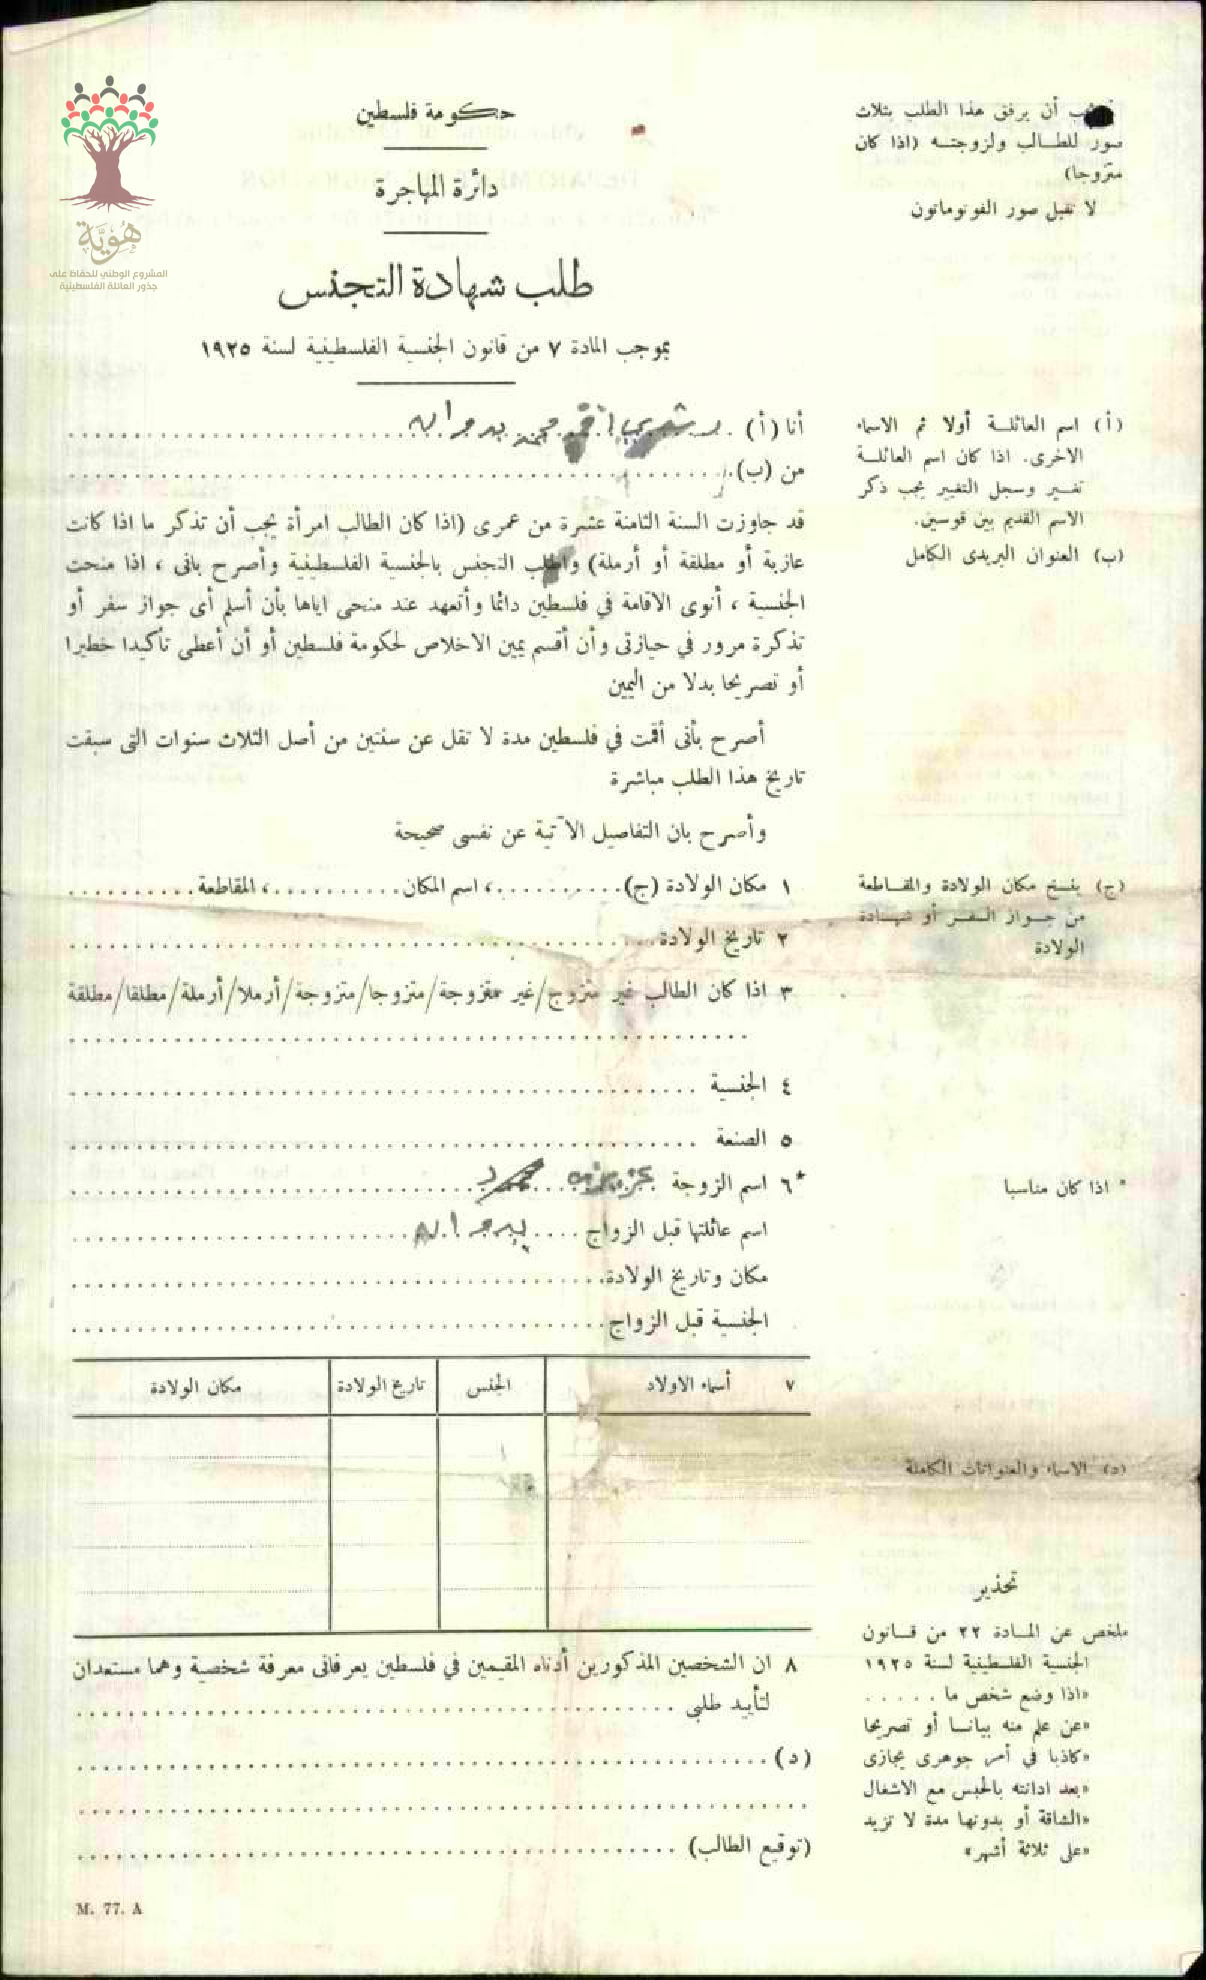 هُوِيَّة
المشروع الوطني للحفاظ على
جذور العائلة الفلسطينية
حكومة فلسطين
دائرة المهاجرة
طلب شهادة التجنس
بموجب المادة ٧ من قانون الجنسية الفلسطينية لسنة ١٩٢٥
أن يرفق هذا الطلب بثلاث
صور للطالب ولزوجته (اذا كان
متزوجا)
لا تقبل صور الفوتوماتون
أنا (أ) محمد بدران
من (ب)
قد جاوزت السنة الثامنة عشرة من عمرى (اذا كان الطالب امرأة يجب أن تذكر ما اذا كانت
عازبة أو مطلقة أو أرملة) وأطلب التجنس بالجنسية الفلسطينية وأصرح بانى ، اذا منحت
الجنسية ، أنوى الاقامة في فلسطين دائما وأتعهد عند منحى اياها بأن أسلم أى جواز سفر أو
تذكرة مرور في حيازتى وأن أقسم يمين الاخلاص لحكومة فلسطين أو أن أعطى تأكيدا خطيرا
أو تصريحا بدلا من اليمين
أصرح بأنى أقمت في فلسطين مدة لا تقل عن سنتين من أصل الثلاث سنوات التى سبقت
تاريخ هذا الطلب مباشرة
وأصرح بان التفاصيل الآتية عن نفسى صحيحة
١ مكان الولادة (ج)..........، اسم المكان..........، المقاطعة..........
٢ تاريخ الولادة
٣ اذا كان الطالب غير متزوج/غير متزوجة/متزوجا/متزوجة/أرملا/أرملة/مطلقا/مطلقة
٤ الجنسية
٥ الصنعة
*٦ اسم الزوجة محمد
اسم عائلتها قبل الزواج بدران
مكان وتاريخ الولادة
الجنسية قبل الزواج
٧ أسماء الاولاد الجنس تاريخ الولادة مكان الولادة
٨ ان الشخصين المذكورين أدناه المقيمين في فلسطين يعرفانى معرفة شخصية وهما مستعدان
لتأييد طلبى
(د)
(توقيع الطالب)
M. 77. A
(أ) اسم العائلة أولا ثم الاسماء
الاخرى. اذا كان اسم العائلة
تغير وسجل التغيير يجب ذكر
الاسم القديم بين قوسين.
(ب) العنوان البريدى الكامل
(ج) ينسخ مكان الولادة والمقاطعة
من جواز السفر أو شهادة
الولادة
* اذا كان مناسبا
(د) الاسماء والعنوانات الكاملة
تحذير
ملخص عن المادة ٢٢ من قانون
الجنسية الفلسطينية لسنة ١٩٢٥
«اذا وضع شخص ما . . . . .
«عن علم منه بيانا أو تصريحا
«كاذبا في أمر جوهرى يجازى
«بعد ادانته بالحبس مع الاشغال
«الشاقة أو بدونها مدة لا تزيد
«على ثلاثة أشهر»